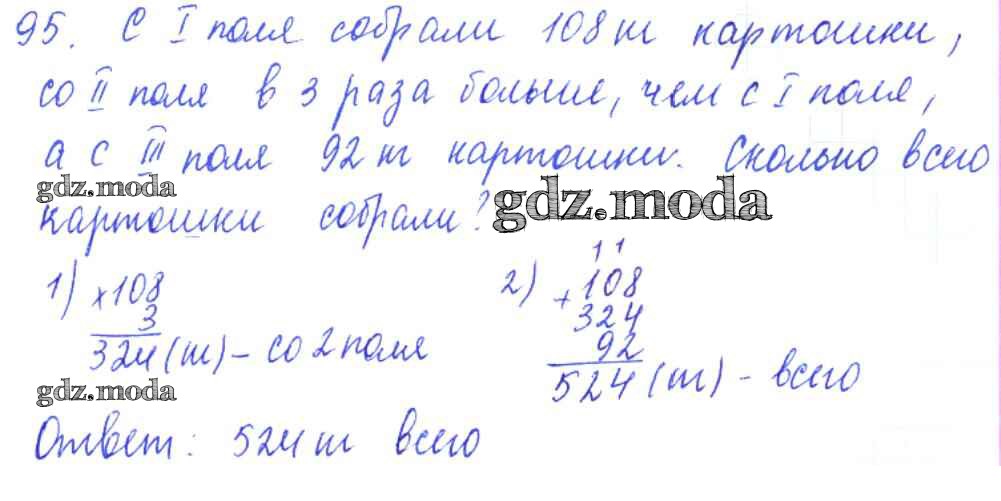 95. С I поля собрали 108 т картошки,
со II поля в 3 раза больше, чем с I поля,
а с III поля 92 т картошки. Сколько всего
gdz.moda
картошки собрали?
gdz.moda
1) ×108
3
324 (т) – со 2 поля
2) 11
+108
324
92
524 (т) – всего
gdz.moda
Ответ: 524 т всего